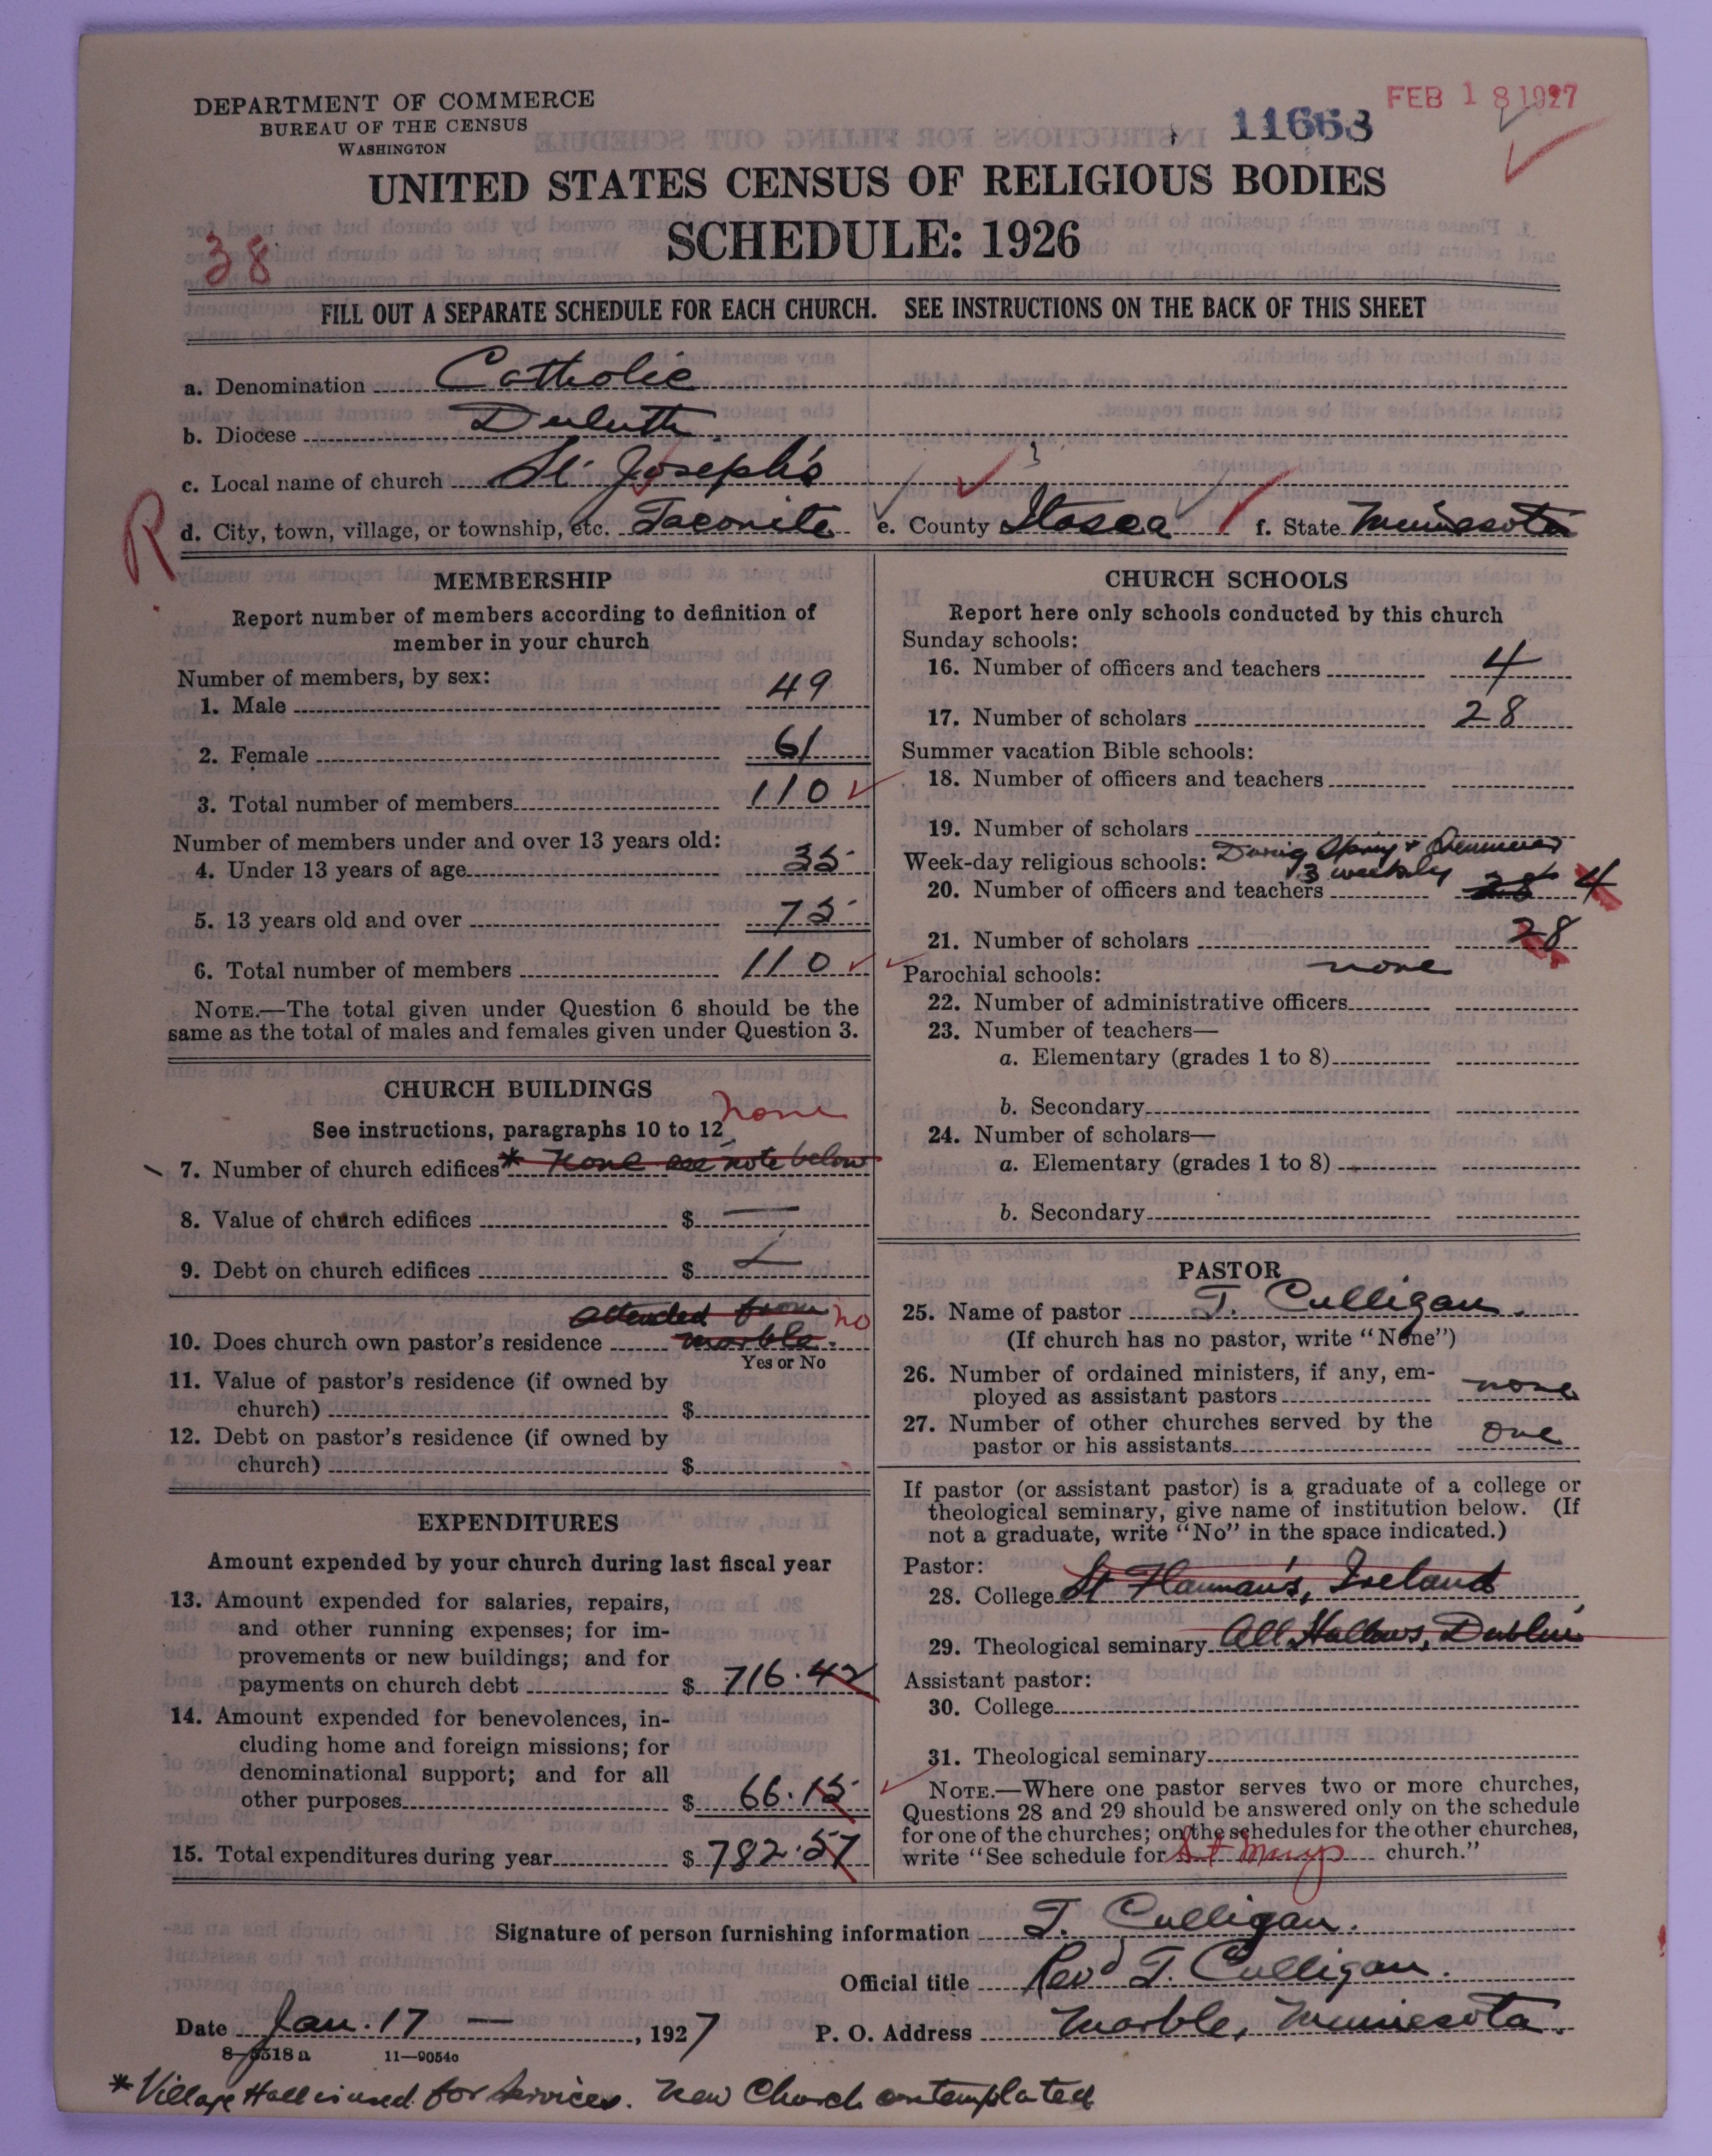 DEPARTMENT OF COMMERCE
BUREAU OF THE CENSUS
WASHINGTON
11668
FEB 18 1927
UNITED STATES CENSUS OF RELIGIOUS BODIES
SCHEDULE: 1926
38
FILL OUT A SEPARATE SCHEDULE FOR EACH CHURCH. SEE INSTRUCTIONS ON THE BACK OF THIS SHEET
a. Denomination Catholic
b. Diocese Duluth
c. Local name of church St. Joseph's
R
d. City, town, village, or township, etc. Taconite e. County Itasca f. State Minnesota
MEMBERSHIP
Report number of members according to definition of
member in your church
Number of members, by sex:
1. Male 49
2. Female 61
3. Total number of members 110
Number of members under and over 13 years old:
4. Under 13 years of age 35
5. 13 years old and over 75
6. Total number of members 110
NOTE.—The total given under Question 6 should be the
same as the total of males and females given under Question 3.
CHURCH BUILDINGS
none
See instructions, paragraphs 10 to 12
7. Number of church edifices * None see note below
8. Value of church edifices $ —
9. Debt on church edifices $ —
attended from no
10. Does church own pastor's residence Marble.
Yes or No
11. Value of pastor's residence (if owned by
church) $
12. Debt on pastor's residence (if owned by
church) $
EXPENDITURES
Amount expended by your church during last fiscal year
13. Amount expended for salaries, repairs,
and other running expenses; for im-
provements or new buildings; and for
payments on church debt $ 716.42
14. Amount expended for benevolences, in-
cluding home and foreign missions; for
denominational support; and for all
other purposes $ 66.15
15. Total expenditures during year $ 782.57
CHURCH SCHOOLS
Report here only schools conducted by this church
Sunday schools:
16. Number of officers and teachers 4
17. Number of scholars 28
Summer vacation Bible schools:
18. Number of officers and teachers
19. Number of scholars
Week-day religious schools: During Spring & Summer
3 weekly
20. Number of officers and teachers 28 4
21. Number of scholars 28
Parochial schools: none
22. Number of administrative officers
23. Number of teachers—
a. Elementary (grades 1 to 8)
b. Secondary
24. Number of scholars—
a. Elementary (grades 1 to 8)
b. Secondary
PASTOR
25. Name of pastor T. Culligan.
(If church has no pastor, write "None")
26. Number of ordained ministers, if any, em-
ployed as assistant pastors none
27. Number of other churches served by the
pastor or his assistants One
If pastor (or assistant pastor) is a graduate of a college or
theological seminary, give name of institution below. (If
not a graduate, write "No" in the space indicated.)
Pastor:
28. College St Flannan's, Ireland
29. Theological seminary All Hallows, Dublin
Assistant pastor:
30. College
31. Theological seminary
NOTE.—Where one pastor serves two or more churches,
Questions 28 and 29 should be answered only on the schedule
for one of the churches; on the schedules for the other churches,
write "See schedule for St Marys church."
Signature of person furnishing information T. Culligan.
Official title Revd T. Culligan.
Date Jan. 17 —, 1927 P. O. Address Marble, Minnesota.
8—5518 a 11—9054o
* Village Hall is used for services. New Church contemplated